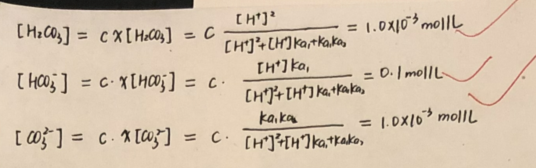 [H₂CO₃] = C X[H₂CO₃] = C [H⁺]² / [H⁺]²+[H⁺]Ka₁+Ka₁Ka₂ = 1.0X10⁻³ mol/L
[HCO₃⁻] = C· X[HCO₃⁻] = C· [H⁺]Ka₁ / [H⁺]²+[H⁺]Ka₁+Ka₁Ka₂ = 0.1mol/L
[CO₃²⁻] = C· X[CO₃²⁻] = C· Ka₁Ka₂ / [H⁺]²+[H⁺]Ka₁+Ka₁Ka₂ = 1.0X10⁻³ mol/L